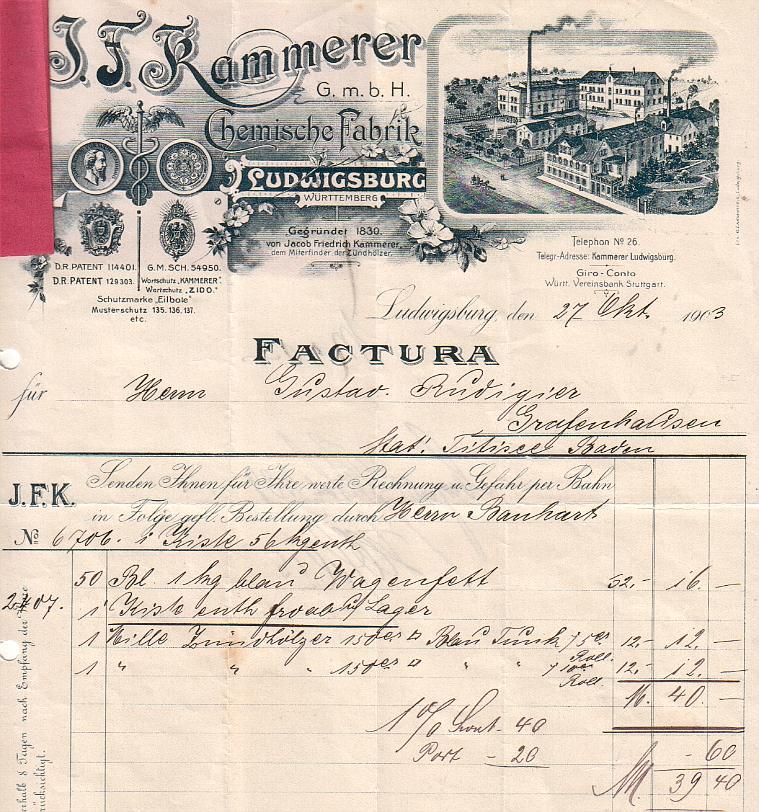 J. F. Kammerer
G. m. b. H.
Chemische Fabrik
LUDWIGSBURG
WÜRTTEMBERG
Gegründet 1830.
von Jacob Friedrich Kammerer,
dem Miterfinder der Zündhölzer.
D.R. PATENT 114401. G.M. SCH. 54950.
D.R. PATENT 129303. Wortschutz „KAMMERER"
Wortschutz „ZIDO."
Schutzmarke „Eilbote"
Musterschutz 135. 136. 137.
etc.
Telephon No 26.
Telegr.-Adresse: Kammerer Ludwigsburg.
Giro-Conto
Württ. Vereinsbank Stuttgart.
Ludwigsburg, den 27 Okt. 1903
FACTURA
für Herrn Gustav Rudigier
Grafenhausen
Stat. Titisee Baden
J.F.K. Senden Ihnen für Ihre werte Rechnung u. Gefahr per Bahn
in Folge gefl. Bestellung durch Herrn Banhart
No 6706. 1 Kiste 56 kg enth
50 Bl. 1 kg blau Wagenfett 32.- 16. -
2407. 1 Kiste enth Lager
1 Mille Zündhölzer 150er Blau Tunk 12.- 12. -
Roll.
1 " " " 150er " " 12.- 12. -
Roll.
M. 40. -
1% Scont. 40
Port - 20 - 60
M. 39 40
8 Tagen nach Empfang der